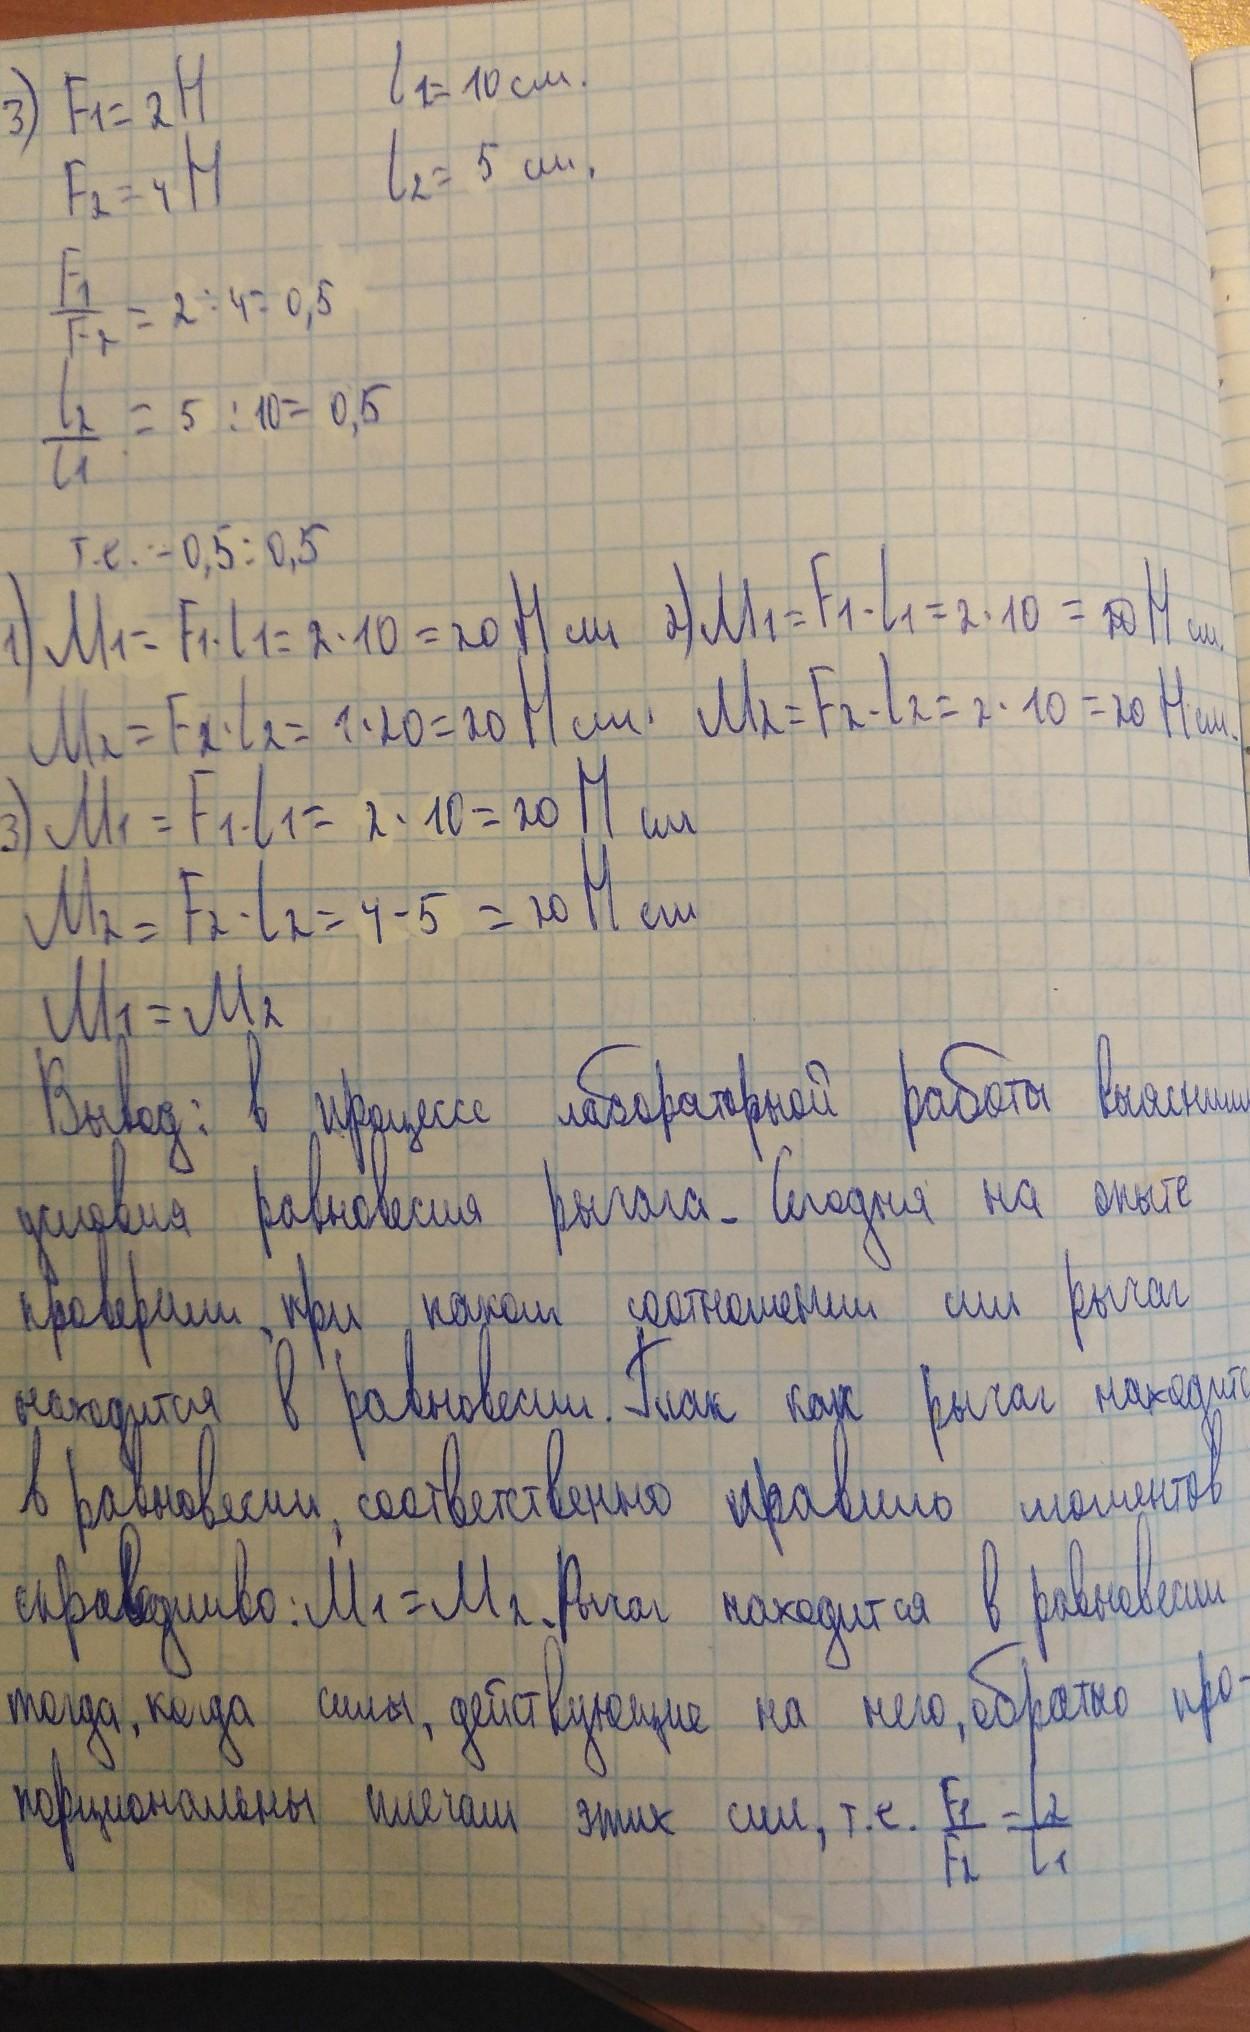 3) F1=2Н l1=10 см.
F2=4Н l2=5 см.
F1/F2 = 2:4=0,5
l2/l1 = 5:10=0,5
т.е. -0,5=0,5
1) M1=F1·l1=2·10=20Н см 2) M1=F1·l1=2·10=20Н см.
M2=F2·l2=1·20=20Н см. M2=F2·l2=2·10=20Н см.
3) M1=F1·l1=2·10=20Н см
M2=F2·l2=4·5=20Н см
M1=M2
Вывод: в процессе лабораторной работы выяснили
условия равновесия рычага. Сегодня на опыте
проверили, при каком соотношении сил рычаг
находится в равновесии. Так как рычаг находится
в равновесии, соответственно правило моментов
справедливо: M1=M2. Рычаг находится в равновесии
тогда, когда силы, действующие на него, обратно про-
порциональны плечам этих сил, т.е. F1/F2=l2/l1